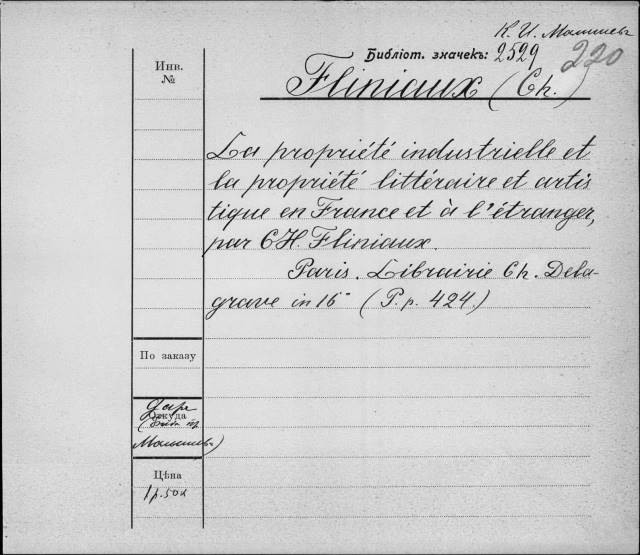 К. И. Малышев
Библіот. значекъ: 2529
220
Инв.
№
Fliniaux (Ch.)
La propriété industrielle et
la propriété littéraire et artis
tique en France et à l'étranger,
par CH. Fliniaux.
Paris. Librairie Ch. Dela-
grave in 16° (P.p. 424.)
По заказу
Даръ
Откуда
Малышев)
Цѣна
1 р. 50 к